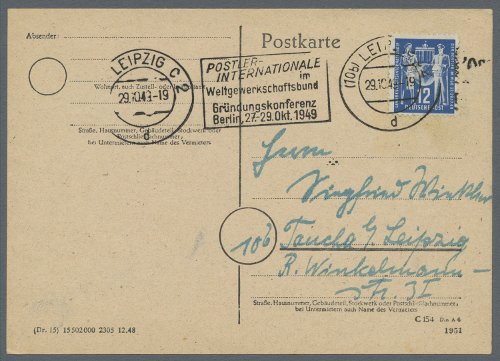 Absender:
Postkarte
LEIPZIG C 2
29.10.49-19
d
POSTLER-
INTERNATIONALE
im
Weltgewerkschaftsbund
Gründungskonferenz
Berlin, 27.-29. Okt. 1949
(10b) LEI
29.10.49
d
12
DEUTSCHE POST
Wohnort, auch Zustell- oder
Straße, Hausnummer, Gebäudeteil, Stockwerk oder
Postschließfachnummer;
bei Untermietern auch Name des Vermieters
Herrn
Siegfried Winkler
10b
Taucha b/ Leipzig
R. Winkelmann-
str. 31
Straße, Hausnummer, Gebäudeteil, Stockwerk oder Postschließfachnummer;
bei Untermietern auch Name des Vermieters
C 154 Din A 6
(Dr. 15) 15502000 2305 12.48
1951